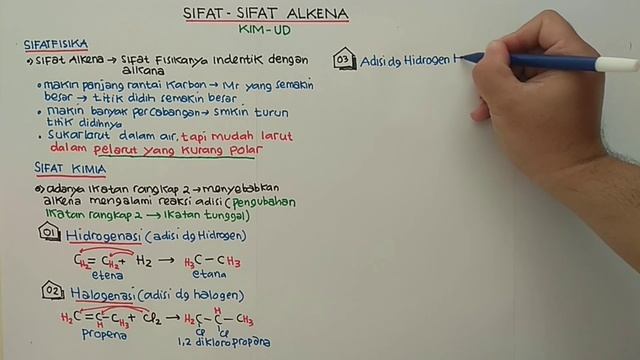 SIFAT - SIFAT ALKENA
KIM-UD
SIFAT FISIKA
Sifat Alkena → sifat Fisikanya indentik dengan
alkana
• makin panjang rantai karbon → Mr yang semakin
besar → titik didih semakin besar
• makin banyak percabangan → smkin turun
titik didihnya
• Sukar larut dalam air, tapi mudah larut
dalam pelarut yang kurang polar
SIFAT KIMIA
adanya ikatan rangkap 2 → menyebabkan
alkena mengalami reaksi adisi (pengubahan
ikatan rangkap 2 → ikatan tunggal)
01 Hidrogenasi (adisi dg Hidrogen)
CH2 = CH2 + H2 → H3C - CH3
etena etana
02 Halogenasi (adisi dg halogen)
H2C = C - CH3 + Cl2 → H2C - C - CH3
H H
Cl Cl
propena 1,2 dikloro propana
03 Adisi dg Hidrogen H